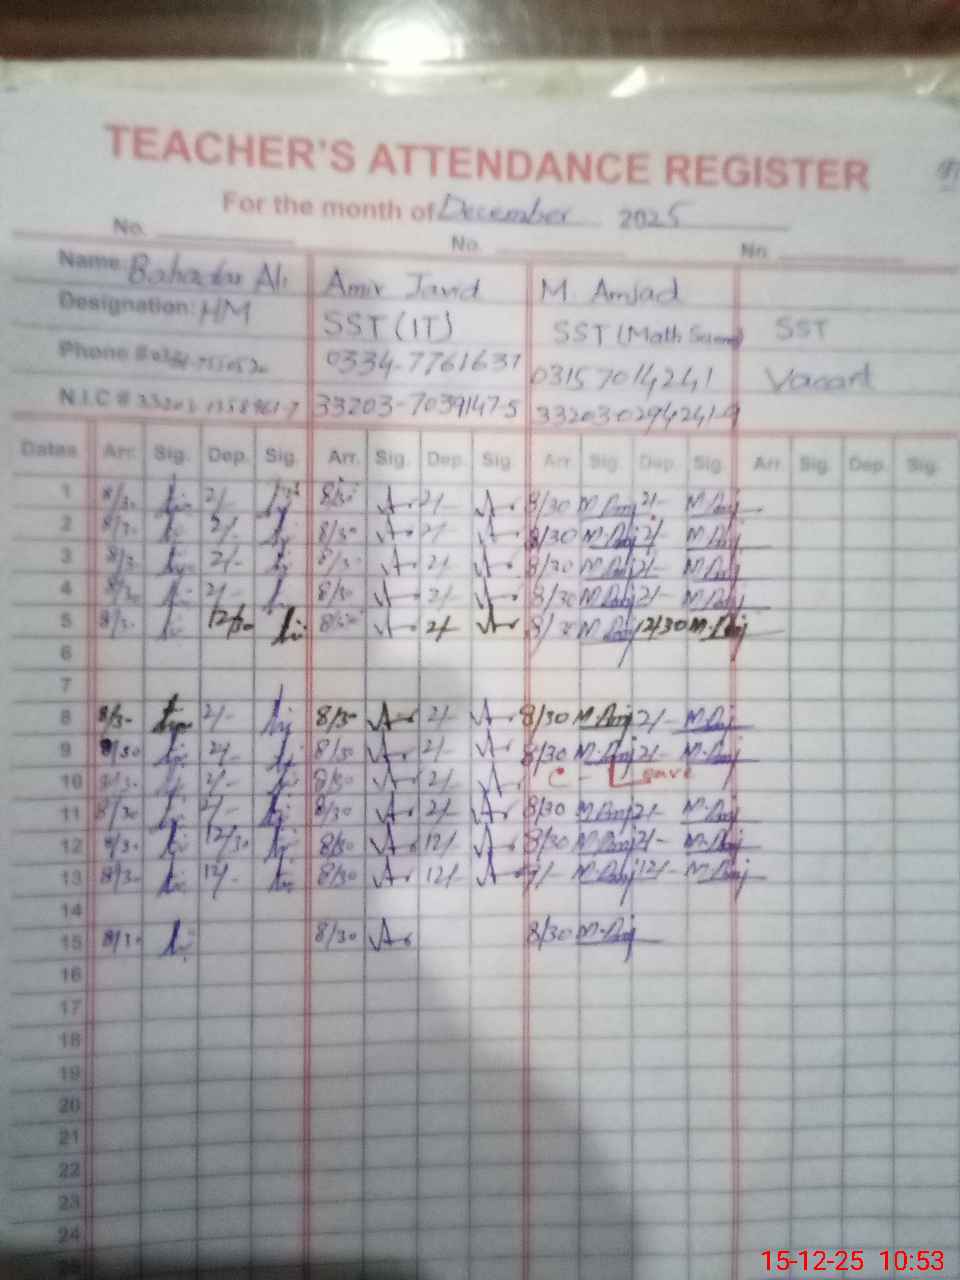 TEACHER'S ATTENDANCE REGISTER
For the month of December 2025
No. No. No
Name: Bahadar Ali Amir Javid M. Amjad
Designation: HM SST (IT) SST (Math Science) SST
Phone # 0334-7761637 03157014241 Vacant
N.I.C # 33203-1358961-7 33203-7039147-5 332030294241-9
Dates Arr. Sig. Dep. Sig. Arr. Sig. Dep. Sig Arr. Sig. Dep. Sig. Arr. Sig. Dep. Sig.
1 8/30 2/- 8/30 2/- 8/30 M.Amj 2/- M.Amj
2 8/30 2/- 8/30 2/- 8/30 M.Amj 2/- M.Amj
3 8/30 2/- 8/30 2/- 8/30 M.Amj 2/- M.Amj
4 8/30 2/- 8/30 2/- 8/30 M.Amj 2/- M.Amj
5 8/30 12/30 8/30 2/- M.Amj 12/30 M.Amj
6
7
8 8/30 2/- 8/30 2/- 8/30 M.Amj 2/- M.Amj
9 8/30 2/- 8/30 2/- 8/30 M.Amj 2/- M.Amj
10 8/30 2/- 8/30 2/- C - Leave
11 8/30 2/- 8/30 2/- 8/30 M.Amj 2/- M.Amj
12 8/30 12/30 8/30 12/- 8/30 M.Amj 2/- M.Amj
13 8/30 12/- 8/30 12/- M.Amj 12/- M.Amj
14
15 8/30 8/30 8/30 M.Amj
16
17
18
19
20
21
22
23
24
15-12-25 10:53